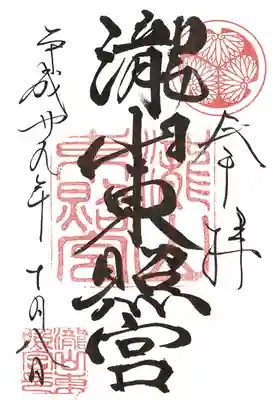 奉拝
瀧山東照宮
平成廿九年十月八日
瀧山東照宮